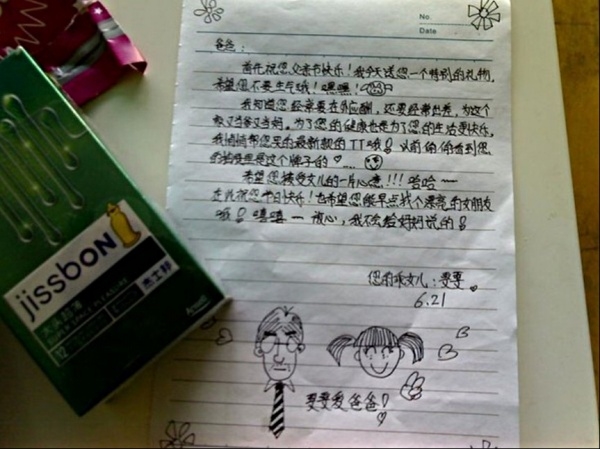 No.
Date
爸爸：
首先祝您父亲节快乐！我今天送您一个特别的礼物，
希望您不要生气哦！嘿嘿！
我知道您经常要在外应酬，还要经常出差，为这个
家又当爸又当妈。为了您的健康也是为了您的生活更快乐，
我悄悄帮您买的最新款的TT哦！以前偷偷看到您
的抽屉里是这个牌子的
希望您接受女儿的一片心意！！！哈哈~~
在此祝您节日快乐！也希望您能早点找个漂亮的女朋友
哦！嘻嘻~放心，我不会给妈妈说的！
您的乖女儿：雯雯
6.21
雯雯爱爸爸！
jissbon
杰士邦
12